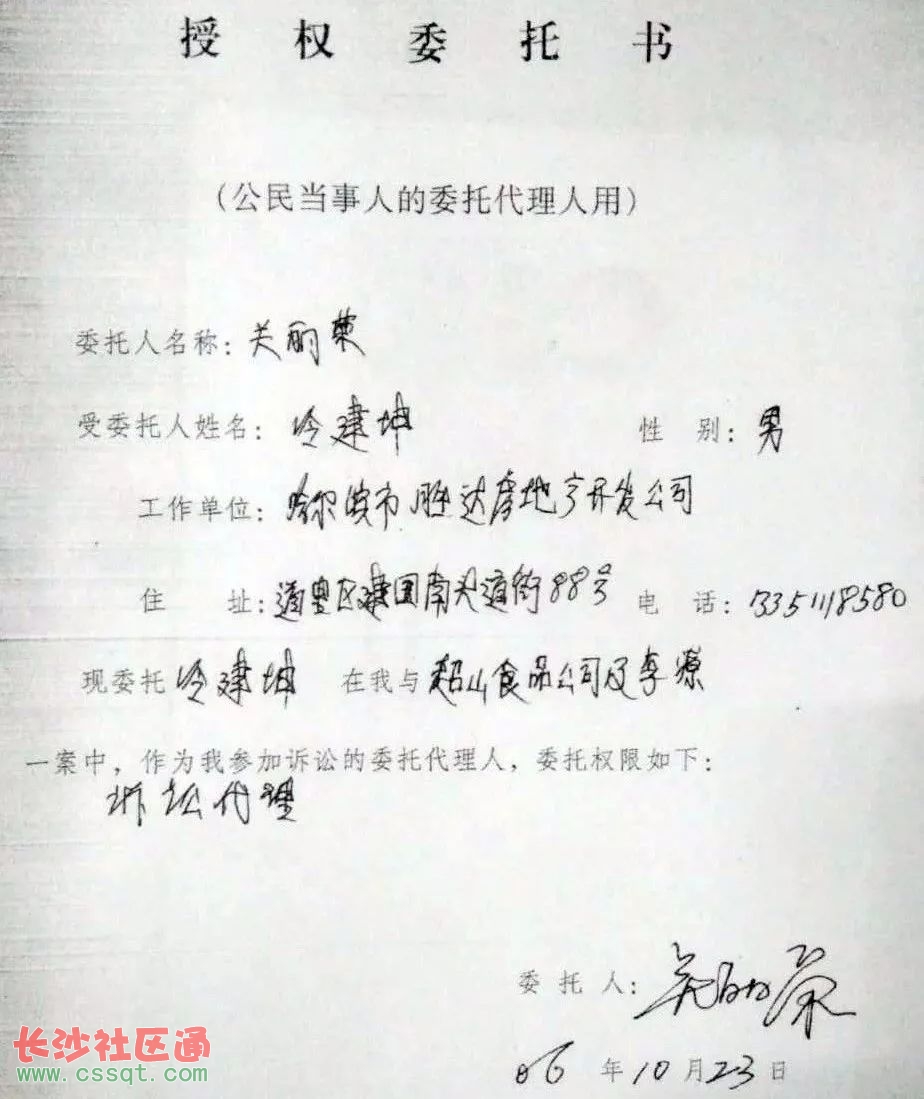 授权委托书
（公民当事人的委托代理人用）
委托人名称：关丽荣
受委托人姓名：冷建坤 性别：男
工作单位：哈尔滨市胜达房地产开发公司
住址：道里区建国南头道街88号 电话：13351118580
现委托 冷建坤 在我与 超山食品公司及李源
一案中，作为我参加诉讼的委托代理人，委托权限如下：
诉讼代理
委托人：关丽荣
06年10月23日
长沙社区通
www.cssqt.com